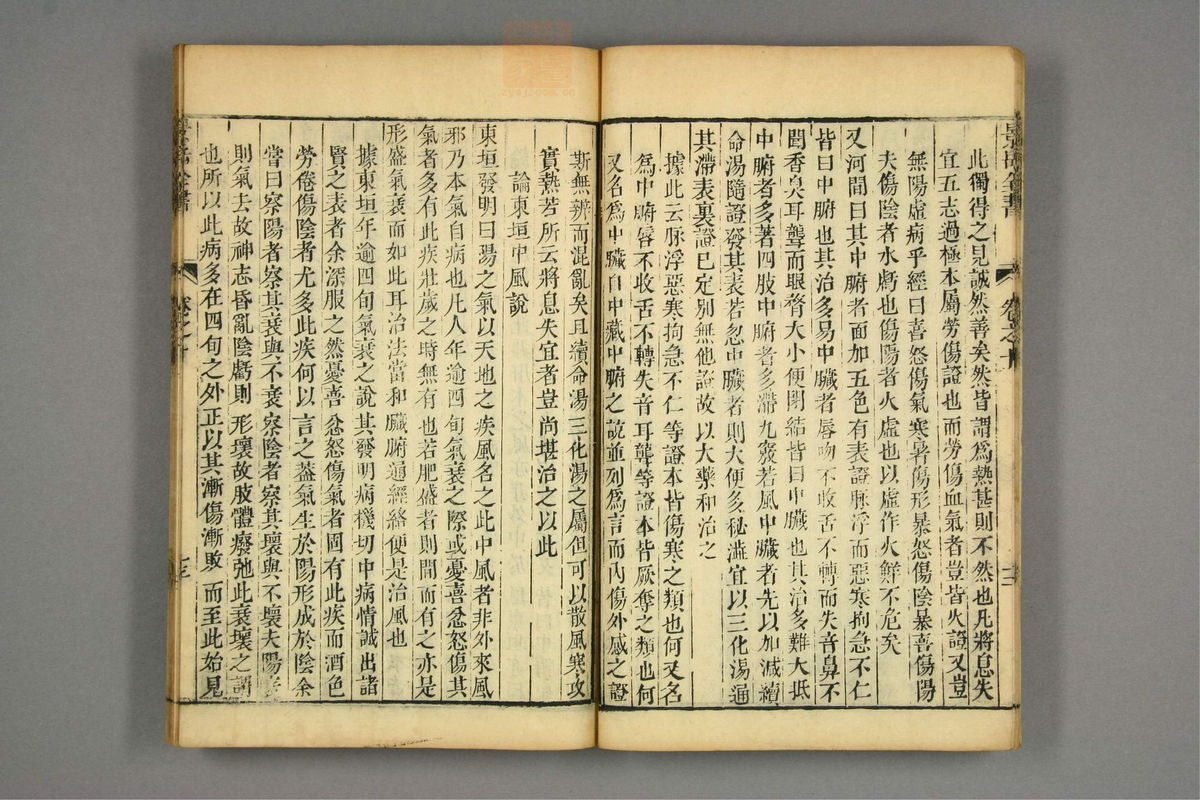 此獨得之見誠然善矣然皆謂爲熱甚則不然也凡將息失
宜五志過極本屬勞傷證也而勞傷血氣者豈皆火證又豈
無陽虛病乎經曰喜怒傷氣寒暑傷形暴怒傷陰暴喜傷陽
夫傷陰者水虧也傷陽者火虛也以虛作火鮮不危矣
又河間曰其中腑者面加五色有表證脉浮而惡寒拘急不仁
皆曰中腑也其治多易中臟者唇吻不收舌不轉而失音鼻不
聞香臭耳聾而眼瞀大小便閉結皆曰中臟也其治多難大抵
中腑者多著四肢中腑者多滯九竅若風中臟者先以加減續
命湯隨證發其表若忽中臟者則大便多秘澁宜以三化湯通
其滯表裏證已定别無他證故以大藥和治之
據此云脉浮惡寒拘急不仁等證本皆傷寒之類也何又名
爲中腑唇不收舌不轉失音耳聾等證本皆厥奪之類也何
又名爲中臟自中臟中腑之說並列爲言而內傷外感之證
斯無辨而混亂矣且續命湯三化湯之屬但可以散風寒攻
實熱若所云將息失宜者豈尚堪治之以此
論東垣中風說
東垣發明曰陽之氣以天地之疾風名之此中風者非外來風
邪乃本氣自病也凡人年逾四旬氣衰之際或憂喜忿怒傷其
氣者多有此疾壯歲之時無有也若肥盛者則間而有之亦是
形盛氣衰而如此耳治法當和臟腑通經絡便是治風也
據東垣年逾四旬氣衰之說其發明病機切中病情誠出諸
賢之表者余深服之然憂喜忿怒傷氣者固有此疾而酒色
勞倦傷陰者尤多此疾何以言之葢氣生於陽形成於陰余
嘗曰察陽者察其衰與不衰察陰者察其壞與不壞夫陽衰
則氣去故神志昏亂陰虧則形壞故肢體廢弛此衰壞之謂
也所以此病多在四旬之外正以其漸傷漸敗而至此始見